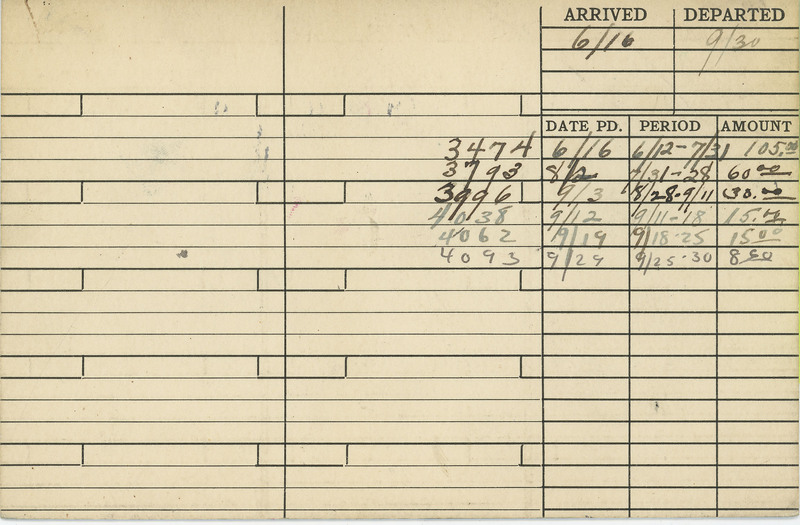 ARRIVED DEPARTED
6/16 9/30
DATE PD. PERIOD AMOUNT
3474 6/16 6/12-7/31 105.00
3793 8/2 7/31-28 60.00
3996 9/3 8/28-9/11 30.00
4038 9/12 9/11-18 15.00
4062 9/19 9/18-25 15.00
4093 9/29 9/25-30 8.60